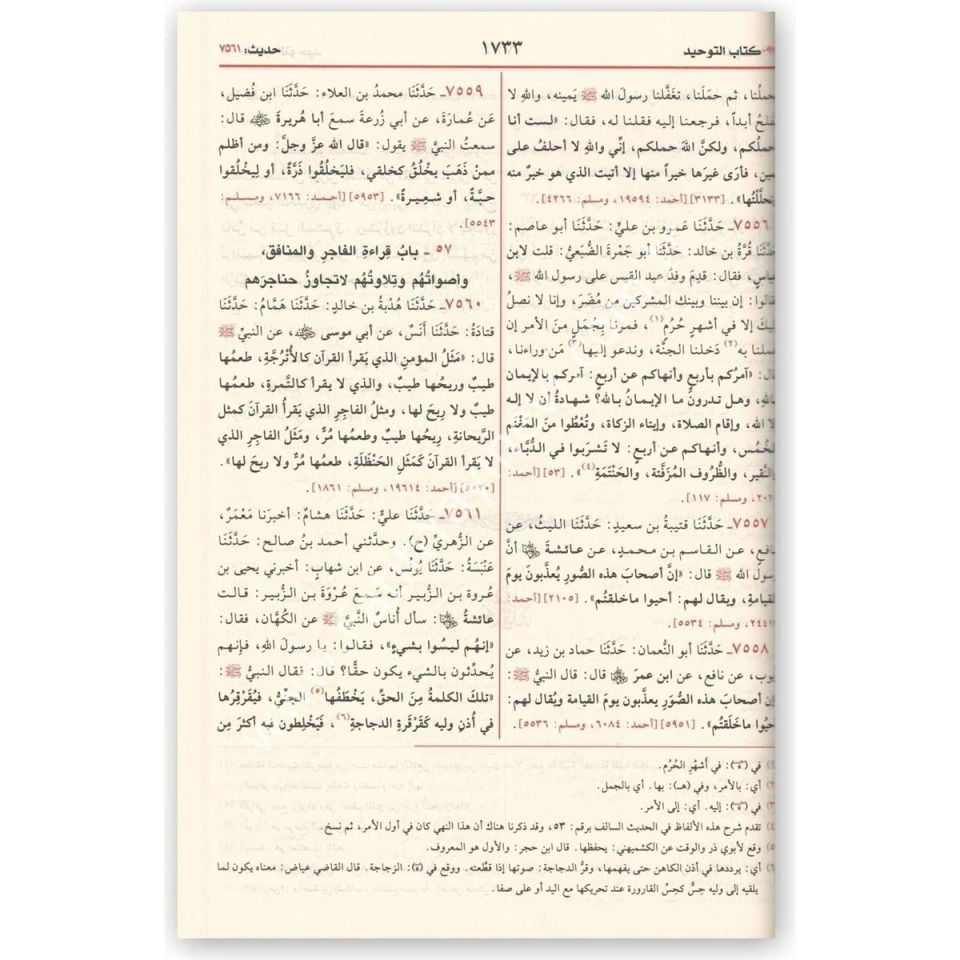 كتاب التوحيد
١٧٣٣
حديث: ٧٥٦١
حملُنا، ثم حمَلَنا، تغَفَّلنا رسولَ الله ﷺ يَمِينه، واللهِ لا
أبداً، فرجعنا إليه فقلنا له، فقال: «لست أنا
حملُكم، ولكنَّ الله حملكم، إنِّي واللهِ لا أحلفُ على
فأرَى غيرَها خيراً منها إلا أتيت الذي هو خيرٌ منه
». [٣١٣٣] [أحمد: ١٩٥٩٤، ومسلم: ٤٢٦٦].
٧٥٥٦ـ حَدَّثَنَا عَمرو بن عليّ: حَدَّثَنَا أبو عاصم:
قُرَّةُ بن خالد: حَدَّثَنَا أبو جَمْرة الضُّبَعيُّ: قلت لابن
فقال: قدِمَ وفدُ عبد القيس على رسول الله ﷺ،
إن بيننا وبينك المشركين من مُضَرَ، وإنا لا نَصلُ
إلا في أشهرٍ حُرُم(١)، فمُرنا بجُمَلٍ منَ الأمر إن
به(٢) دَخلنا الجنَّة، وندعو إليها(٣) مَن وراءنا،
«آمرُكم بأربع وأنهاكم عن أربع: آمركم بالإيمان
وهل تدرونَ ما الإيمانُ بالله؟ شهادةُ أن لا إله
الله، وإقام الصلاة، وإيتاء الزكاة، وتُعْطُوا منَ المَغْنَم
الخُمُس، وأنهاكم عن أربع: لا تَشرَبوا في الدُّبَّاء،
والظُّروف المُزَفَّتة، والحَنْتَمَةِ(٤)». [٥٣] [أحمد:
ومسلم: ١١٧].
٧٥٥٧ـ حَدَّثَنَا قتيبةُ بن سعيد: حَدَّثَنَا الليثُ، عن
عَن القاسم بن محمد، عن عائشةَ رضي الله عنها أنَّ
الله ﷺ قال: «إنَّ أصحابَ هذه الصُّوَرِ يُعذَّبونَ يومَ
ويقال لهم: أحيوا ما خلقتُم». [٢١٠٥] [أحمد:
ومسلم: ٥٥٣٤].
٧٥٥٨ـ حَدَّثَنَا أبو النُّعمان: حَدَّثَنَا حماد بن زيد، عن
عن نافع، عن ابن عمرَ رضي الله عنهما قال: قال النبيُّ ﷺ:
أصحابَ هذه الصُّوَر يعذَّبون يومَ القيامة ويُقال لهم:
ما خَلَقتُم». [٥٩٥١] [أحمد: ٦٠٨٤، ومسلم: ٥٥٣٦].
٧٥٥٩ـ حَدَّثَنَا محمدُ بن العلاء: حَدَّثَنَا ابن فُضيل،
عَن عُمارَةَ، عن أبي زُرعةَ سمعَ أبا هريرةَ رضي الله عنه قال:
سمعتُ النبيَّ ﷺ يقول: «قال الله عزَّ وجلَّ: ومن أظلم
ممن ذَهَبَ يخْلُق كخلقي، فليَخلُقوا ذَرَّةً، أو ليخلُقوا
حبَّةً، أو شعيرةً». [٥٩٥٣] [أحمد: ٧١٦٦، ومسلم:
٥٥٤٣].
٥٧ ـ بابُ قِراءةِ الفاجرِ والمنافقِ،
وأصواتُهُم وتِلاوتُهُم لا تجاوزُ حناجرَهم
٧٥٦٠ـ حَدَّثَنَا هُدْبةُ بن خالدٍ: حَدَّثَنَا هَمَّامٌ: حَدَّثَنَا
قتادَةُ: حَدَّثَنَا أنَسٌ، عن أبي موسى رضي الله عنه، عن النبيِّ ﷺ
قال: «مَثَلُ المؤمنِ الذي يَقرأ القرآن كالأُتْرُجَّة، طعمُها
طيبٌ وريحُها طيبٌ، والذي لا يقرأ كالتَّمرةِ، طعمُها
طيبٌ ولا ريحَ لها، ومثلُ الفاجِرِ الذي يَقرأُ القرآنَ كمثل
الرَّيحانةِ، ريحُها طيبٌ وطعمُها مُرٌّ، ومَثَلُ الفاجرِ الذي
لا يَقرأ القرآنَ كمَثَلِ الحَنْظَلَةِ، طعمُها مُرٌّ ولا ريحَ لها».
[٥٠٢٠] [أحمد: ١٩٦١٤، ومسلم: ١٨٦١].
٧٥٦١ـ حَدَّثَنَا عليٌّ: حَدَّثَنَا هشامٌ: أخبرنا مَعْمَرٌ،
عن الزُّهريِّ (ح). وحدَّثني أحمد بن صالح: حَدَّثَنَا
عَنْبَسَةُ: حَدَّثَنَا يُونُس، عَن ابن شهابٍ: أخبرني يحيى بن
عُروة بن الزُّبير أنه سمعَ عُرْوَةَ بن الزُّبير: قالت
عائشةُ رضي الله عنها: سأل أُناسٌ النَّبيَّ ﷺ عن الكُهَّان، فقال:
«إنهُم ليسُوا بشيءٍ»، فقالوا: يا رسولَ اللهِ، فإنهم
يُحدِّثون بالشيء يكون حقًّا؟ قال: فقال النبيُّ ﷺ:
«تلكَ الكلمةُ مِنَ الحقِّ، يَخْطَفُها(٥) الجنِّيُّ، فيُقَرْقِرُها
في أُذنِ وليه كَقَرْقَرةِ الدجاجةِ(٦)، فَيَخْلِطون فيه أكثرَ مِن
(١) في (ﮪ): في أَشهُرِ الحُرُم.
(٢) أي: بالأمر، وفي (هـ): بها. أي بالجمل.
(٣) في (ﮪ): إليه. أي: إلى الأمر.
(٤) تقدم شرح هذه الألفاظ في الحديث السالف برقم: ٥٣، وقد ذكرنا هناك أن هذا النهي كان في أول الأمر، ثم نسخ.
(٥) وقع لأبوي ذر والوقت عن الكشميهني: يحفظها. قال ابن حجر: والأول هو المعروف.
(٦) أي: يرددها في أذن الكاهن حتى يفهمها، وقرُّ الدجاجة: صوتها إذا قطَّعته. ووقع في (ﮪ): الزجاجة. قال القاضي عياض: معناه يكون لما
يلقيه إلى وليه حِسٌّ كحِسِّ القارورة عند تحريكها مع اليد أو على صفا.